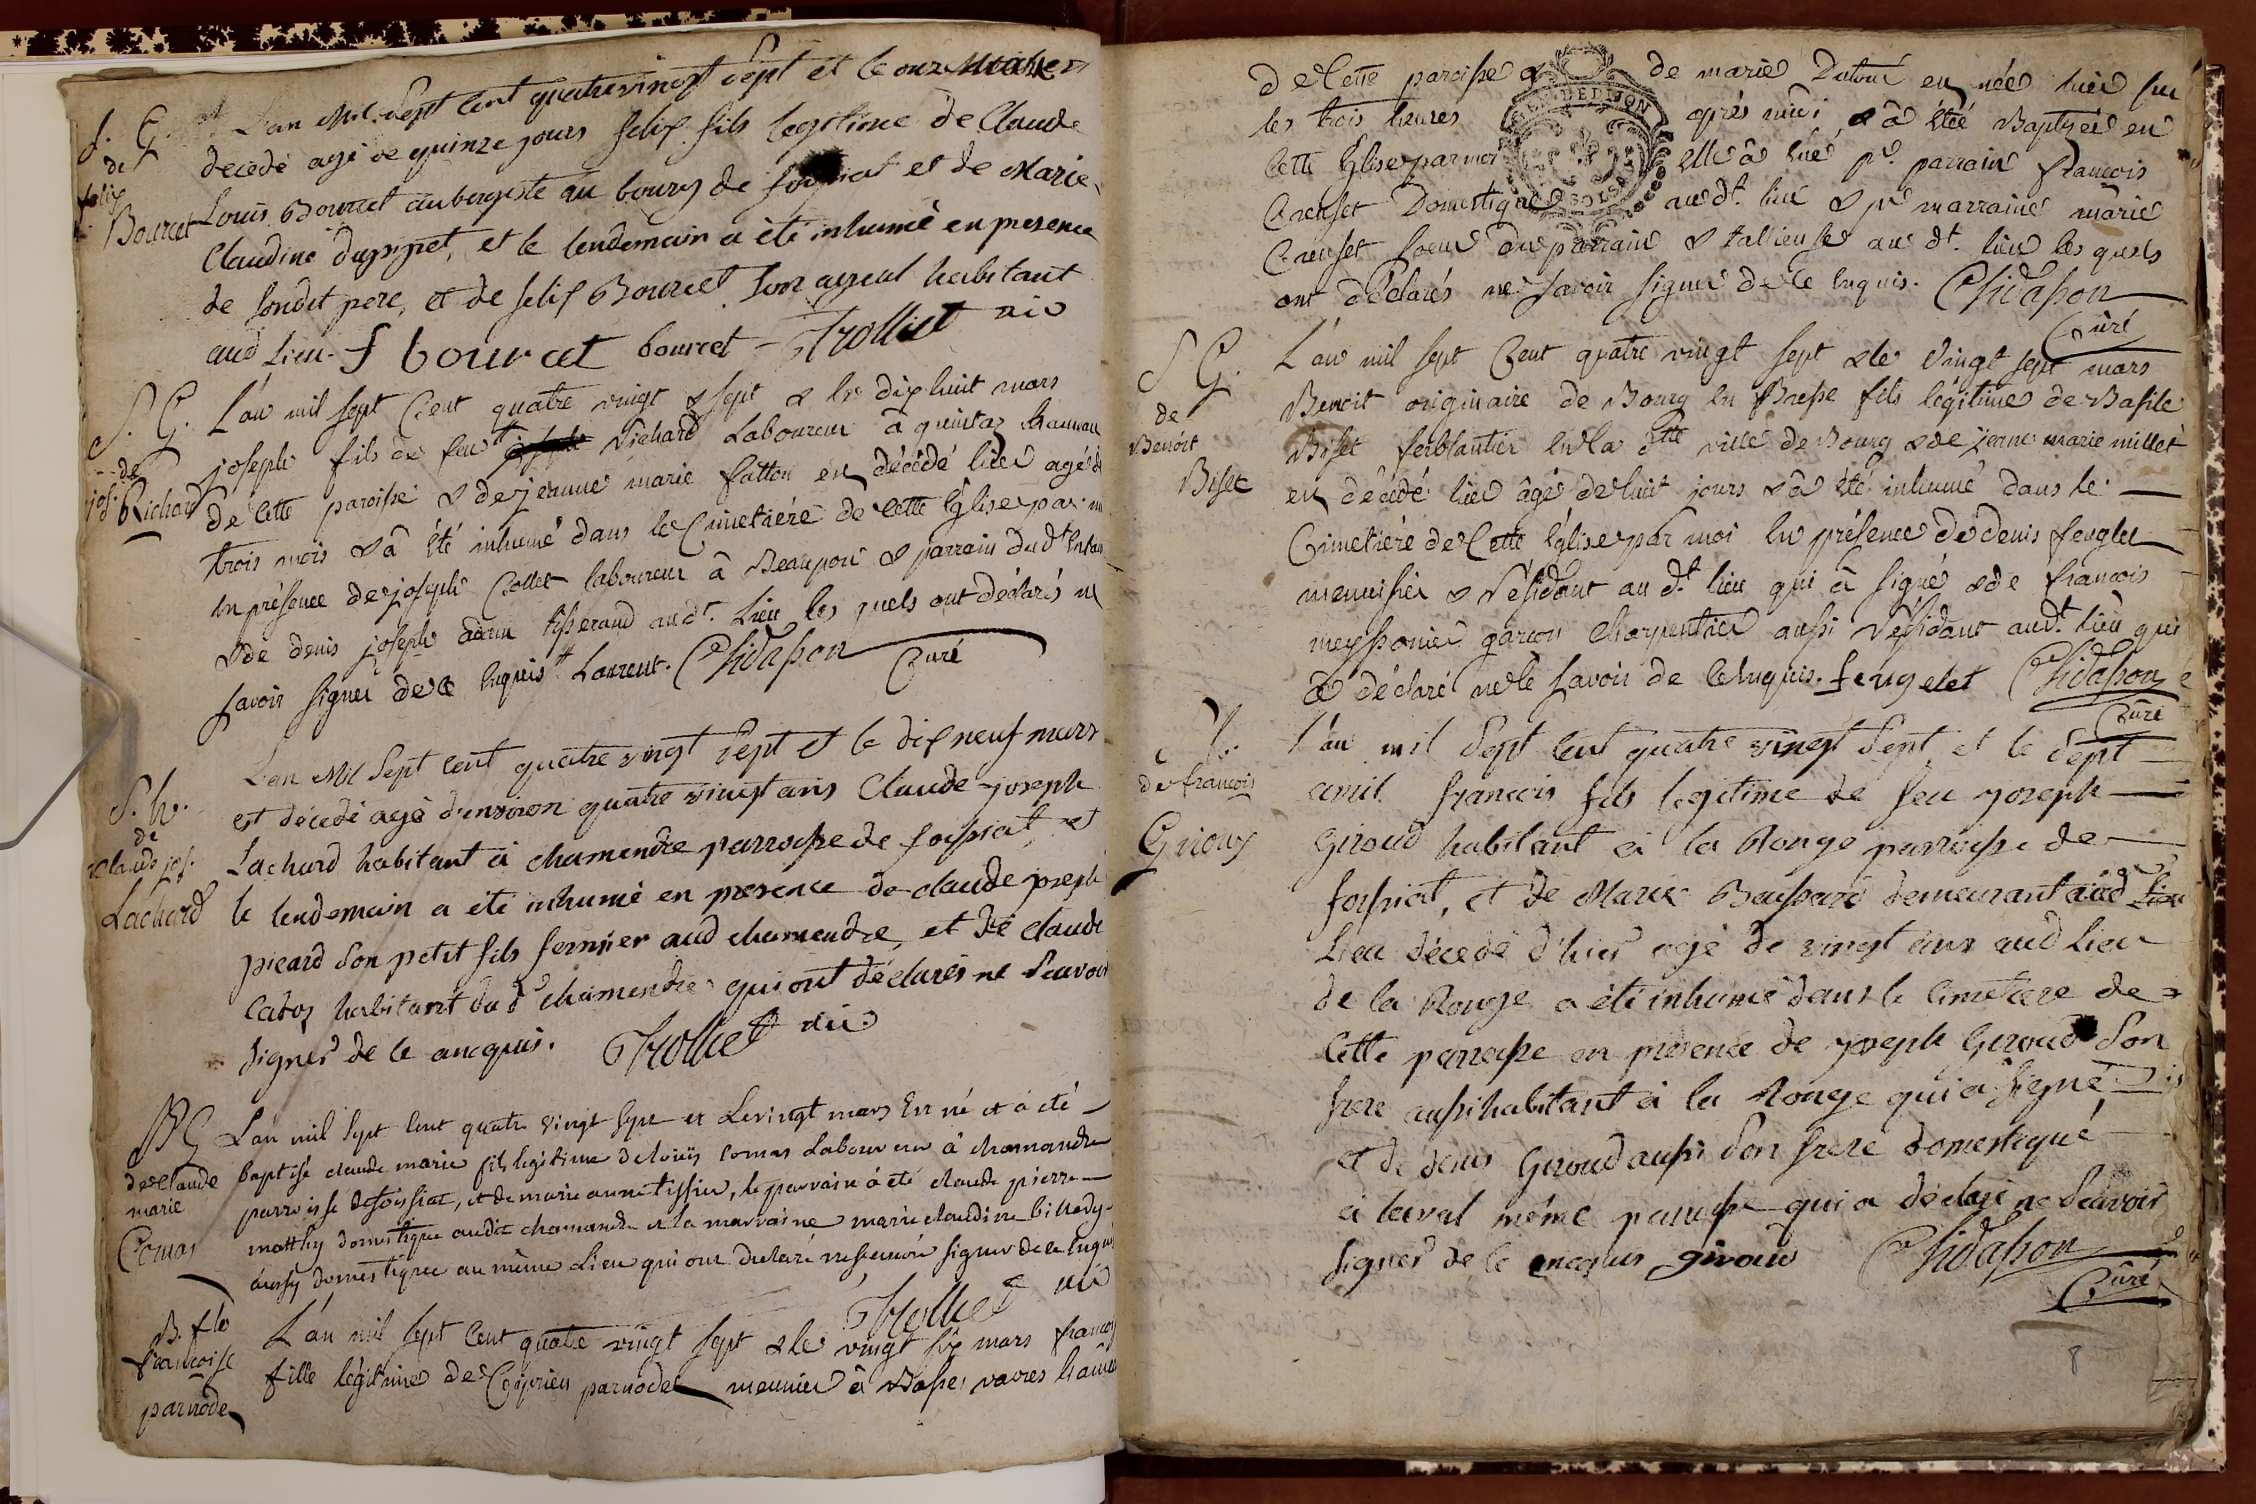 S. G.
de
felix
Bourcet
L'an Mil Sept cent quatre vingt Sept et le onze Mars est
decedé agé de quinze jours felix fils legitime de Claude
Louis Bourcet aubergiste au bourg de foissiat et de Marie
Claudine et le lendemain a été inhumé en presence
de sondit pere, et de felix Bourcet son ayeul habitant
aud Lieu. f bourcet bourcet Trolliet vic
S. G.
de
jos. Richard
L'an mil sept Cent quatre vingt & sept & le dix huit mars
joseph fils de feu Richard Laboureur à quintas hameau
de cette paroisse & de jeanne marie fatton est décédé hier agé de
trois mois & â été inhumé dans le Cimetiére de cette Eglise par moi
en présence de joseph Collet laboureur â Beaupont & parrain dud.t Enfant
& de denis joseph adam tisserand aud.t Lieu les quels ont déclarés ne
savoir signer de ce Enquis Laurent. Chidasson
Curé
S. h.
de
claude jos.
Lachard
L'an Mil Sept cent quatre vingt Sept et le dix neuf mars
est décedé agé d'environ quatre vingt ans Claude joseph
Lachard habitant à chamendre parroisse de foissiat, et
le lendemain a été inhumé en presence de claude joseph
picard son petit fils fermier aud chamendre, et de claude
habitant dud chamendre qui ont déclarés ne Scavoir
signer de ce anequis. Trolliet vic
B G
de Claude
marie
Comas
L'an mil sept cent quatre vingt sept et Le vingt mars Est né et à été
baptisé claude marie fils legitime de loüis comas Laboureur â chamandre
parroisse de foissiat, et de marie anne tissier, le parrain â été claude pierre
matthy domestique audit chamandre et la marraine marie claudine billody
aussy domestique au même Lieu qui ont declaré ne scavoir signer de ce Enquis
Trolliet vic
B. fle
francoise
parnodet
L'an mil sept Cent quatre vingt sept & le vingt six mars francoise
fille légitime de Cyprien parnodet meunier â Basses vavres hameau
de Cette paroisse & de marie Dutour est née hier sur
les trois heures après midi & â été Baptisée en
cette Eglise par moi Elle â eue p.r parrain francois
Creuset Domestique aud.t lieu & p.r marraine marie
Creuset soeur du parrain & tallieuse au d.t lieu les quels
ont déclarés ne savoir signer de ce enquis. Chidasson
Curé
S G.
de
Benoit
Biset
L'an mil sept Cent quatre vingt sept & le vingt sept mars
Benoit originaire de Bourg en Bresse fils légitime de Basile
Biset ferblantier En la d.tte ville de Bourg & de jeanne marie millet
est décédé hier âgé de huit jours & â été inhumé dans le
Cimetiére de Cette Eglise par moi en présence de denis feuglet
menuisier & résidant au d.t lieu qui â signé & de francois
meyssonier garcon charpentier aussi résidant aud.t lieu qui
a déclaré ne le savoir de ce Enquis. feugelet Chidasson
Curé
S.
de francois
Giroux
l'an mil Sept cent quatre vingt Sept et le Sept
avril francois fils legitime de feu joseph
Giroud habitant à la Rouge parroisse de
foissiat, et de Marie demeurant aud Lieu
Lieu décedé d'hier agé de vingt ans aud Lieu
de la Rouge a été inhumé dans le cimetiere de
cette parroisse en présence de joseph Giroud son
frere aussi habitant à la Rouge qui a signé
et de denis Giroud aussi son frere domestique
à laval même paroisse qui a déclaré ne Scavoir
signer de ce enequis giroud Chidasson
Curé
8